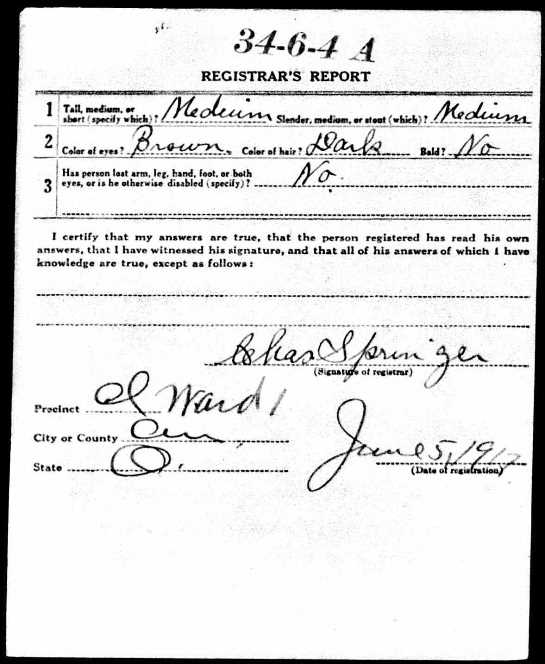 34-6-4 A
REGISTRAR'S REPORT
1 Tall, medium, or short (specify which)? Medium Slender, medium, or stout (which)? Medium
2 Color of eyes? Brown. Color of hair? Dark Bald? No
3 Has person lost arm, leg, hand, foot, or both eyes, or is he otherwise disabled (specify)? No.
I certify that my answers are true, that the person registered has read his own
answers, that I have witnessed his signature, and that all of his answers of which I have
knowledge are true, except as follows:
Chas Springer
(Signature of registrar)
Precinct Ward 1
City or County Cin
State O.
June 5, 1917
(Date of registration)